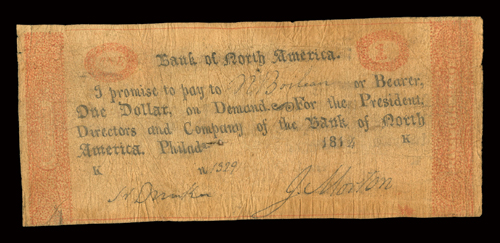 1
Bank of North America.
I promise to pay to or Bearer,
One Dollar, on Demand. For the President,
Directors and Company of the Bank of North
America. Philad 181 K
K № 1329
H Drinker J. Morton